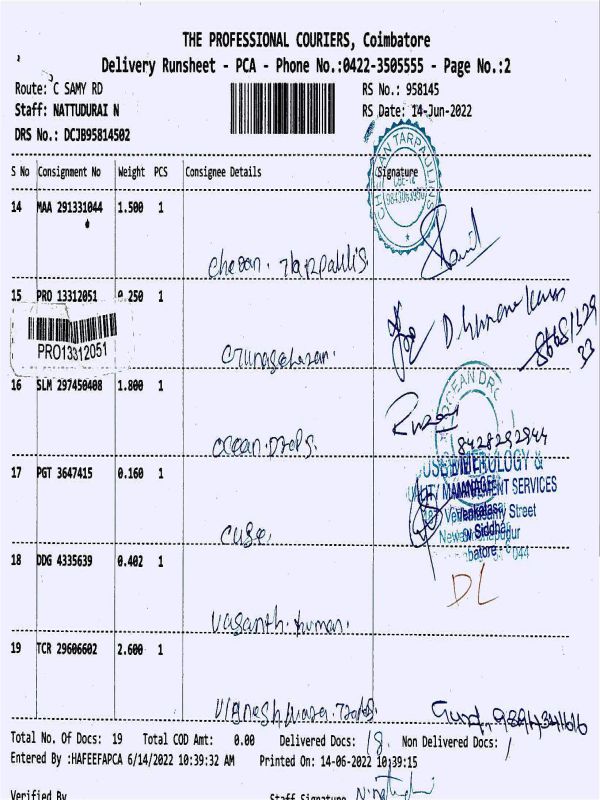 THE PROFESSIONAL COURIERS, Coimbatore
Delivery Runsheet - PCA - Phone No.:0422-3505555 - Page No.:2
Route: C SAMY RD RS No.: 958145
Staff: NATTUDURAI N RS Date: 14-Jun-2022
DRS No.: DCJB95814502
S No Consignment No Weight PCS Consignee Details Signature
CHERAN TARPAULINS
14 MAA 291331044 1.500 1
Cheran.
15 PRO 13312051 0.250 1
PRO13312051
16 SLM 297450408 1.800 1
OCEAN DRO
Ocean. Drops.
8428292944
17 PGT 3647415 0.160 1
MANAGEMENT SERVICES
Street
Cube.
18 DDG 4335639 0.402 1
DL
Vasanth. Kumar.
19 TCR 29606602 2.600 1
Total No. Of Docs: 19 Total COD Amt: 0.00 Delivered Docs: 18. Non Delivered Docs: 1
Entered By :HAFEEFAPCA 6/14/2022 10:39:32 AM Printed On: 14-06-2022 10:39:15
Verified By Staff Signature